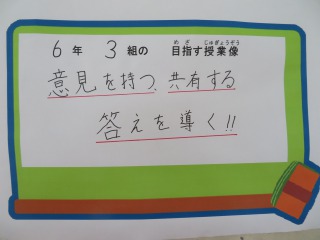 6年 3組の 目指す授業像
意見を持つ、共有する
答えを導く!!